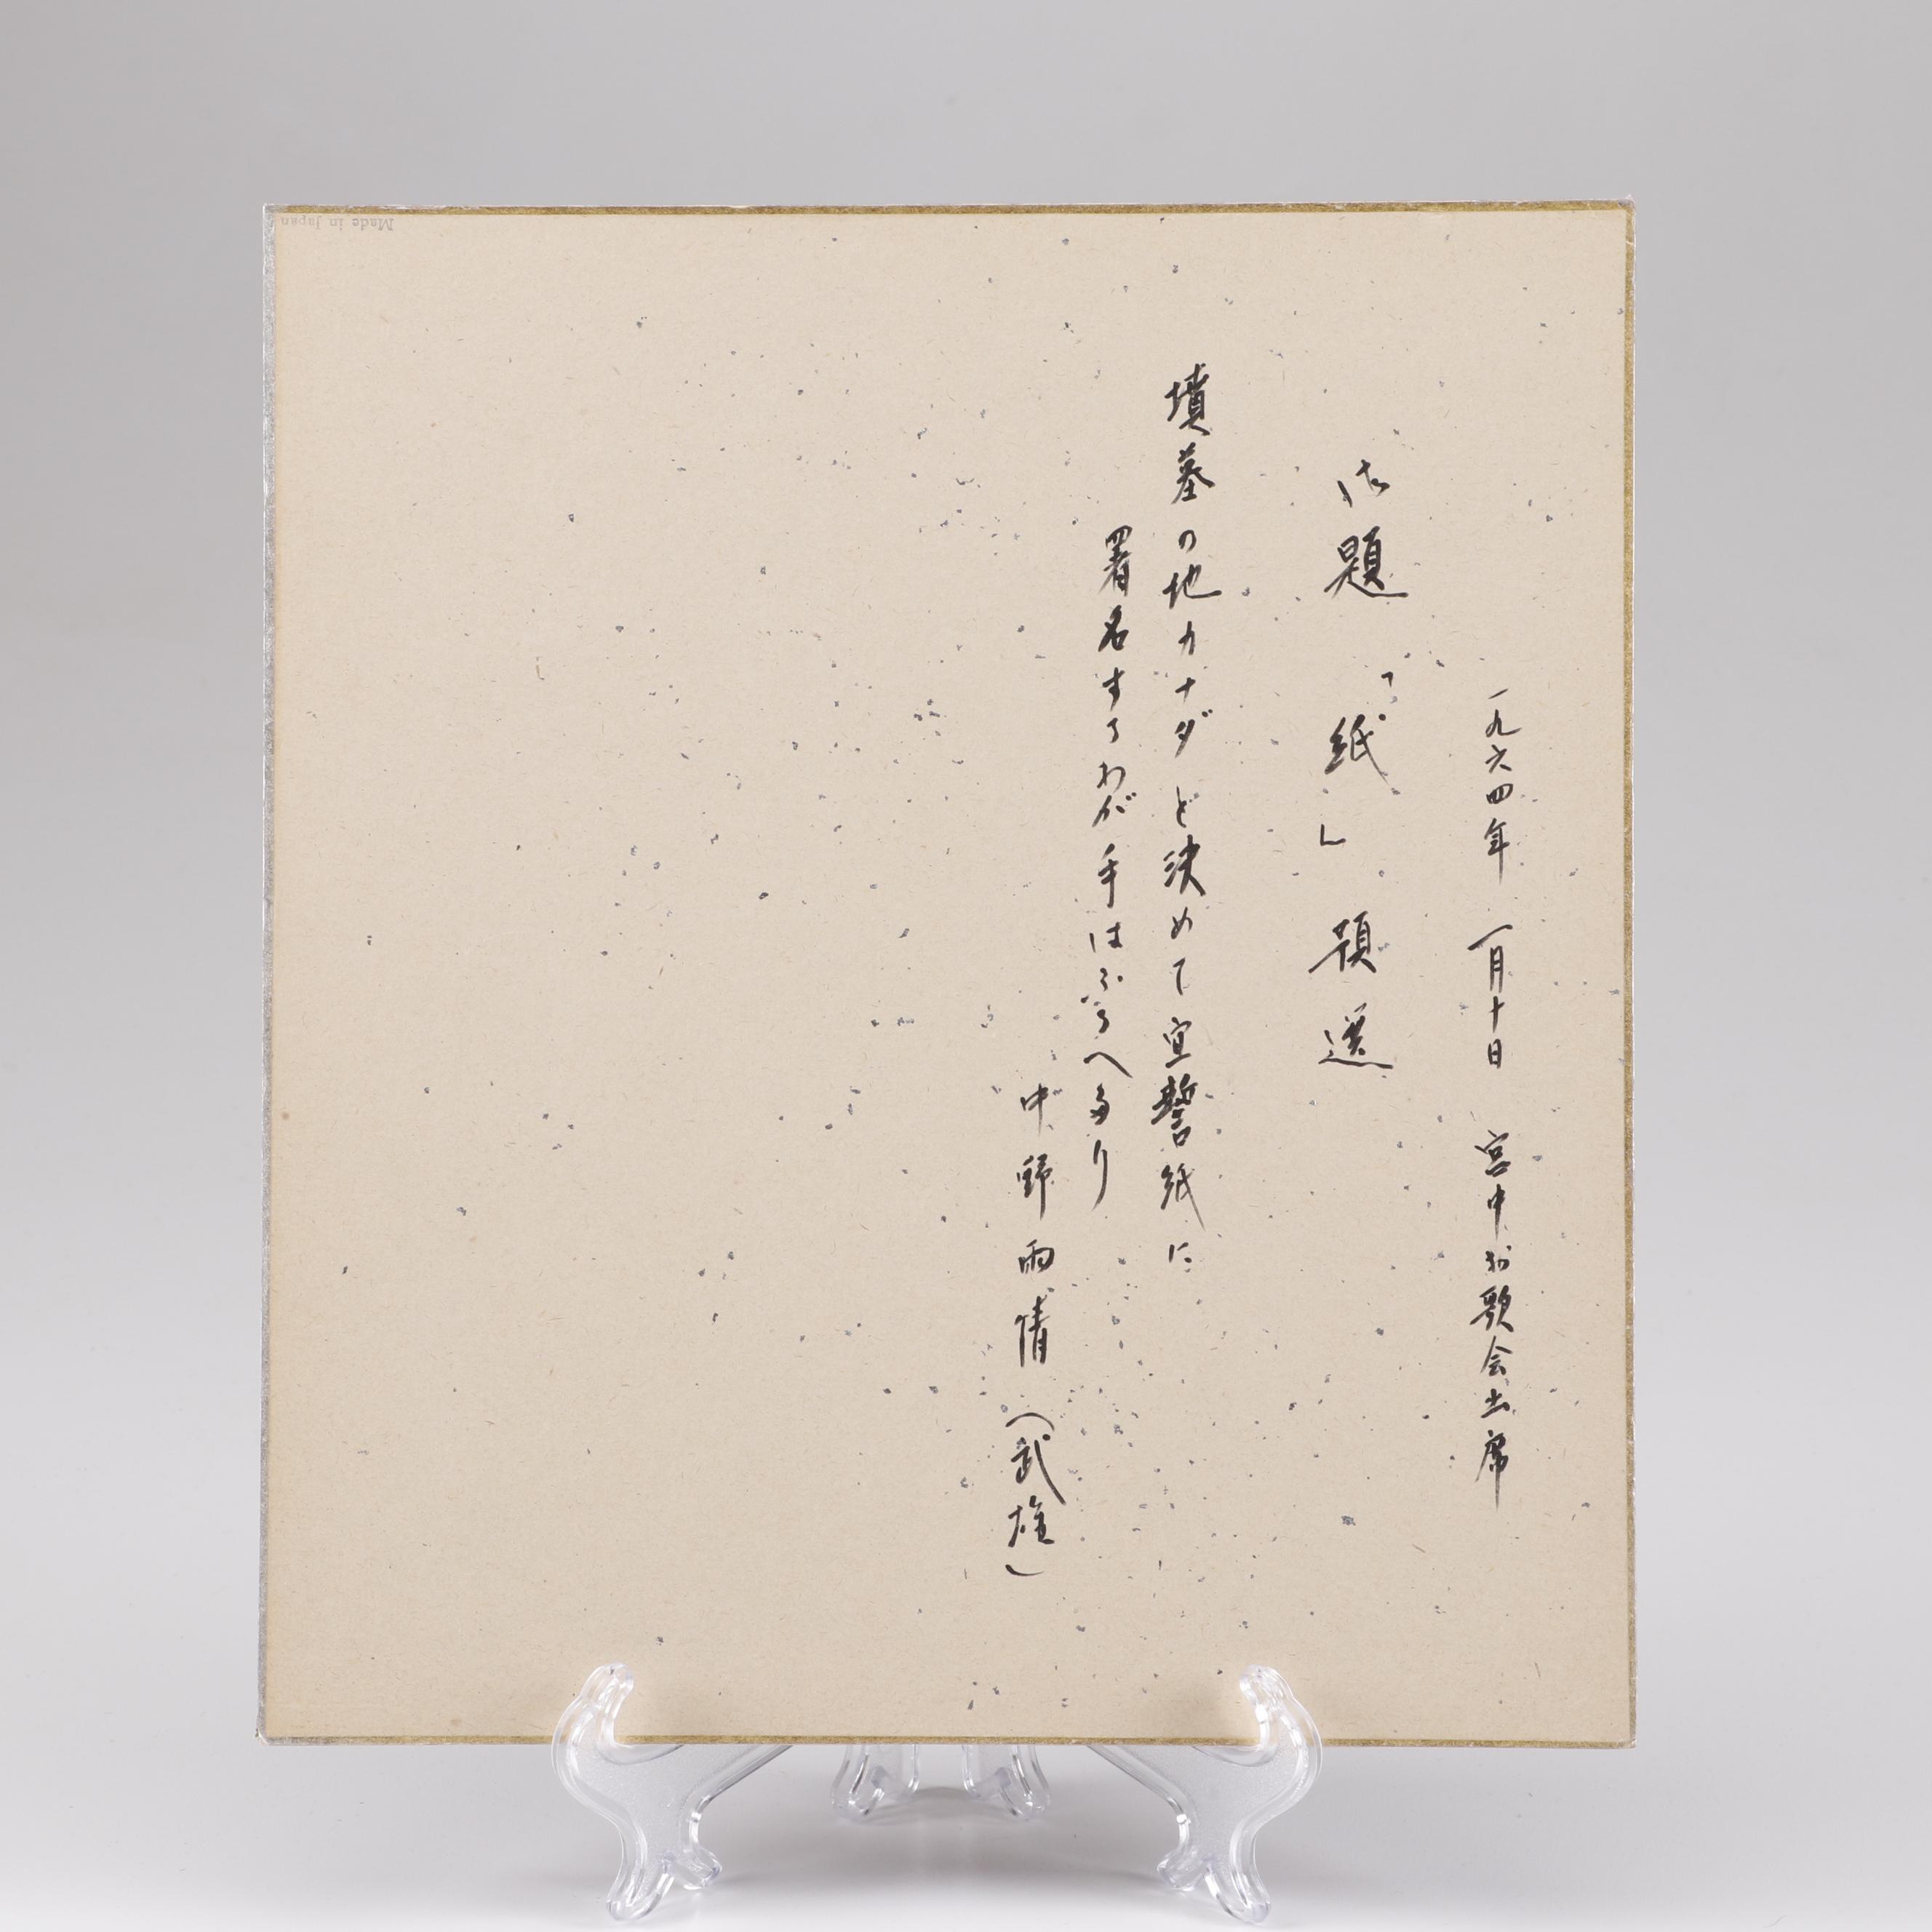 一九六四年 一月十日 宮中お歌会出席
御題 「紙」 預選
墳墓の地カナダと決めて宣誓紙に
署名するわが手はふるへたり
中野雨情(武雄)
Made in Japan